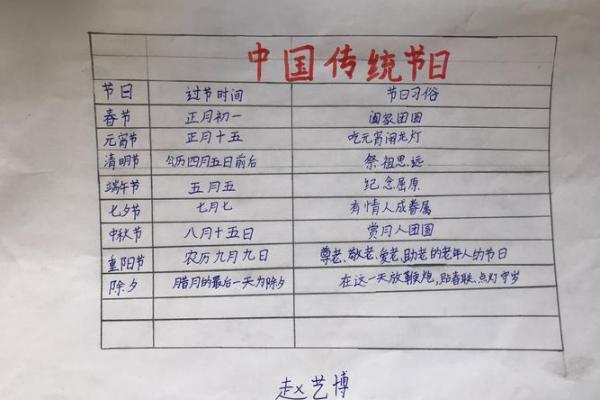 中国传统节日
节日 过节时间 节日习俗
春节 正月初一 阖家团圆
元宵节 正月十五 吃元宵闹龙灯
清明节 公历四月五日前后 祭祖思远
端午节 五月五 纪念屈原
七夕节 七月七 有情人成眷属
中秋节 八月十五日 赏月人团圆
重阳节 农历九月九日 尊老、敬老、爱老、助老的老年人的节日
除夕 腊月的最后一天为除夕 在这一天放鞭炮,贴春联、点灯守岁
赵艺博